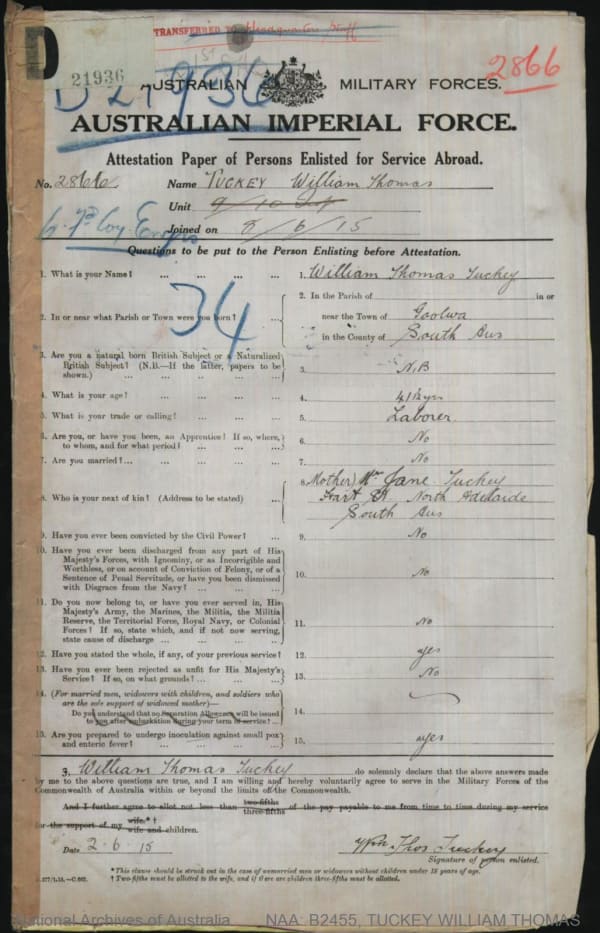 TRANSFERRED TO Headquarters Staff
D
21936
D 21936
2866
AUSTRALIAN MILITARY FORCES.
AUSTRALIAN IMPERIAL FORCE.
Attestation Paper of Persons Enlisted for Service Abroad.
No. 2866 Name TUCKEY William Thomas
Unit 9/10
Joined on 8/6/15
Questions to be put to the Person Enlisting before Attestation.
34
1. What is your Name? ... ... ... ... 1. William Thomas Tuckey
2. In or near what Parish or Town were you born? ... 2. In the Parish of in or
near the Town of Goolwa
in the County of South Aus
3. Are you a natural born British Subject or a Naturalized
British Subject? (N.B.—If the latter, papers to be
shown.) ... ... ... ... 3. N.B
4. What is your age? ... ... ... ... 4. 41 yrs
5. What is your trade or calling? ... ... ... 5. Laborer
6. Are you, or have you been, an Apprentice? If so, where,
to whom, and for what period? ... ... ... 6. No
7. Are you married? ... ... ... ... 7. No
8. Who is your next of kin? (Address to be stated) ... 8. Mother) Mrs Jane Tuckey
North Adelaide
South Aus
9. Have you ever been convicted by the Civil Power? ... 9. No
10. Have you ever been discharged from any part of His
Majesty's Forces, with Ignominy, or as Incorrigible and
Worthless, or on account of Conviction of Felony, or of a
Sentence of Penal Servitude, or have you been dismissed
with Disgrace from the Navy? ... ... ... 10. No
11. Do you now belong to, or have you ever served in, His
Majesty's Army, the Marines, the Militia, the Militia
Reserve, the Territorial Force, Royal Navy, or Colonial
Forces? If so, state which, and if not now serving,
state cause of discharge ... ... ... 11. No
12. Have you stated the whole, if any, of your previous service? 12. yes
13. Have you ever been rejected as unfit for His Majesty's
Service? If so, on what grounds? ... ... ... 13. No
14. (For married men, widowers with children, and soldiers who
are the sole support of widowed mother)—
Do you understand that no Separation Allowance will be issued
to you after embarkation during your term of service? ... 14.
15. Are you prepared to undergo inoculation against small pox
and enteric fever? ... ... ... ... 15. yes
I, William Thomas Tuckey do solemnly declare that the above answers made
by me to the above questions are true, and I am willing and hereby voluntarily agree to serve in the Military Forces of the
Commonwealth of Australia within or beyond the limits of the Commonwealth.
And I further agree to allot not less than two-fifths three-fifths of the pay payable to me from time to time during my service
for the support of my wife.*† wife and children.
Date 2.6.15 Wm Thos Tuckey
Signature of person enlisted.
* This clause should be struck out in the case of unmarried men or widowers without children under 18 years of age.
† Two-fifths must be allotted to the wife, and if there are children three-fifths must be allotted.
National Archives of Australia NAA: B2455, TUCKEY WILLIAM THOMAS